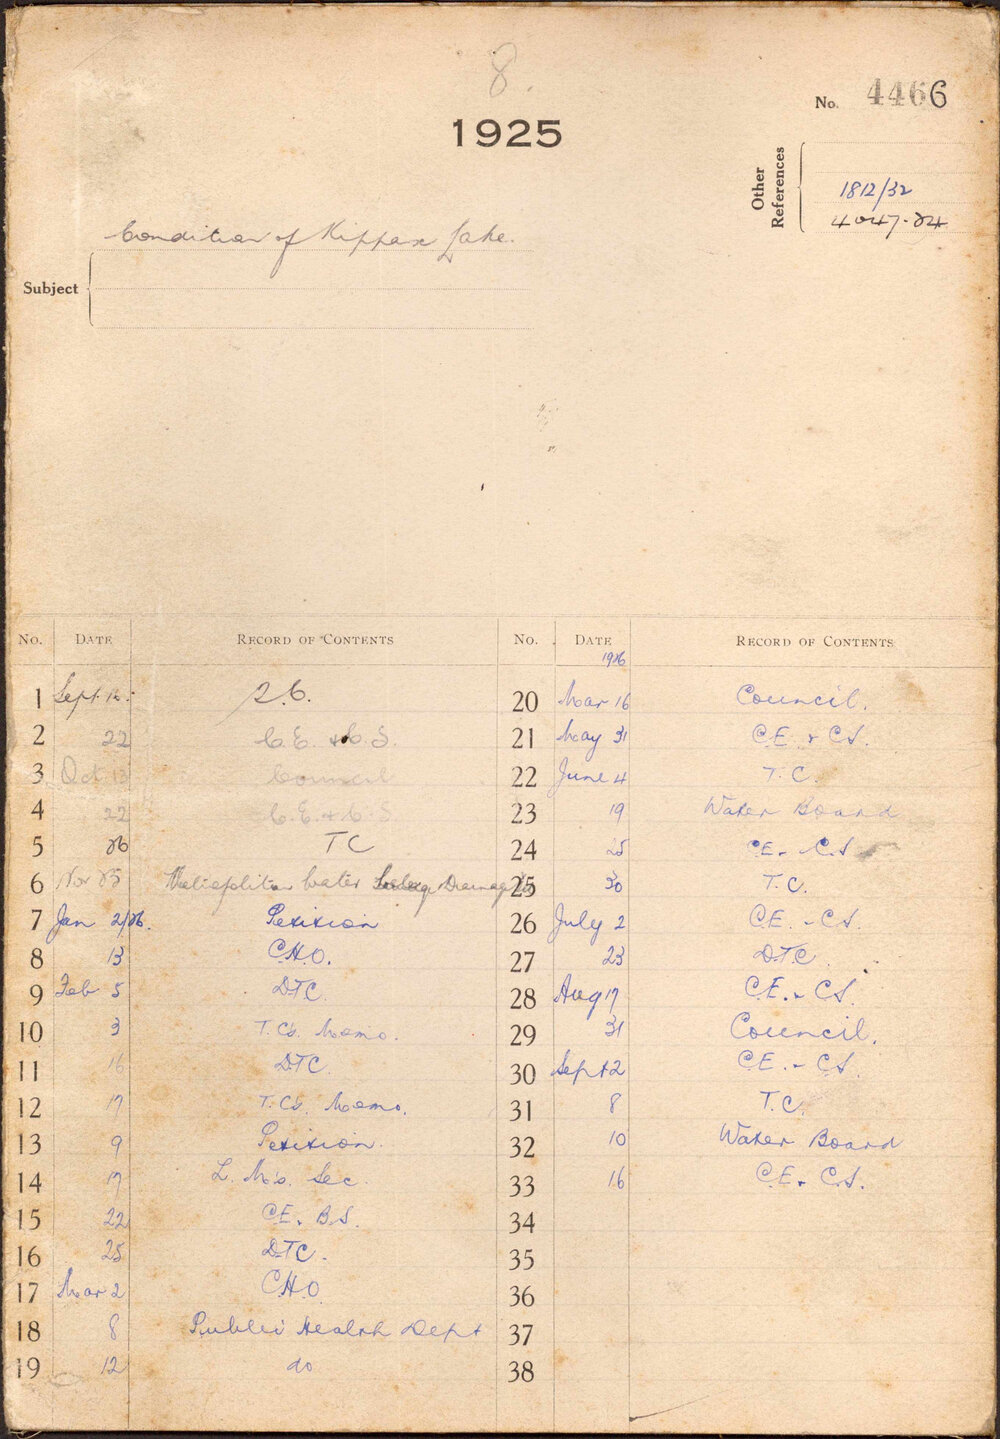 8.
1925
No. 4466
Other References
1812/32
4047-24
Condition of Kippax Lake.
Subject
No. Date Record of Contents
1 Sept. 15
2 22 C.E. & C.S.
3 Oct 13 Council
4 22 C.E. & C.S.
5 26 TC
6 Nov 25 Metropolitan Water Sewerage Drainage Bd
7 Jan 2/26. Petition
8 13 C.H.O.
9 Feb 5 DTC
10 3 T.C's. Memo.
11 16 DTC.
12 17 T.C's. Memo.
13 9 Petition.
14 17 L. M's. Sec.
15 22 C.E. B.S.
16 25 DTC.
17 Mar 2 C.H.O
18 8 Public Health Dept
19 12 do
No. Date Record of Contents
1926
20 Mar 16 Council.
21 May 31 C.E. & C.S.
22 June 4 T.C.
23 19 Water Board
24 25 C.E. - C.S
25 30 T.C.
26 July 2 C.E. - C.S.
27 23 DTC
28 Aug 17 C.E. - C.S.
29 31 Council.
30 Sept 2 C.E. - C.S.
31 8 T.C.
32 10 Water Board
33 16 C.E. & C.S.
34
35
36
37
38